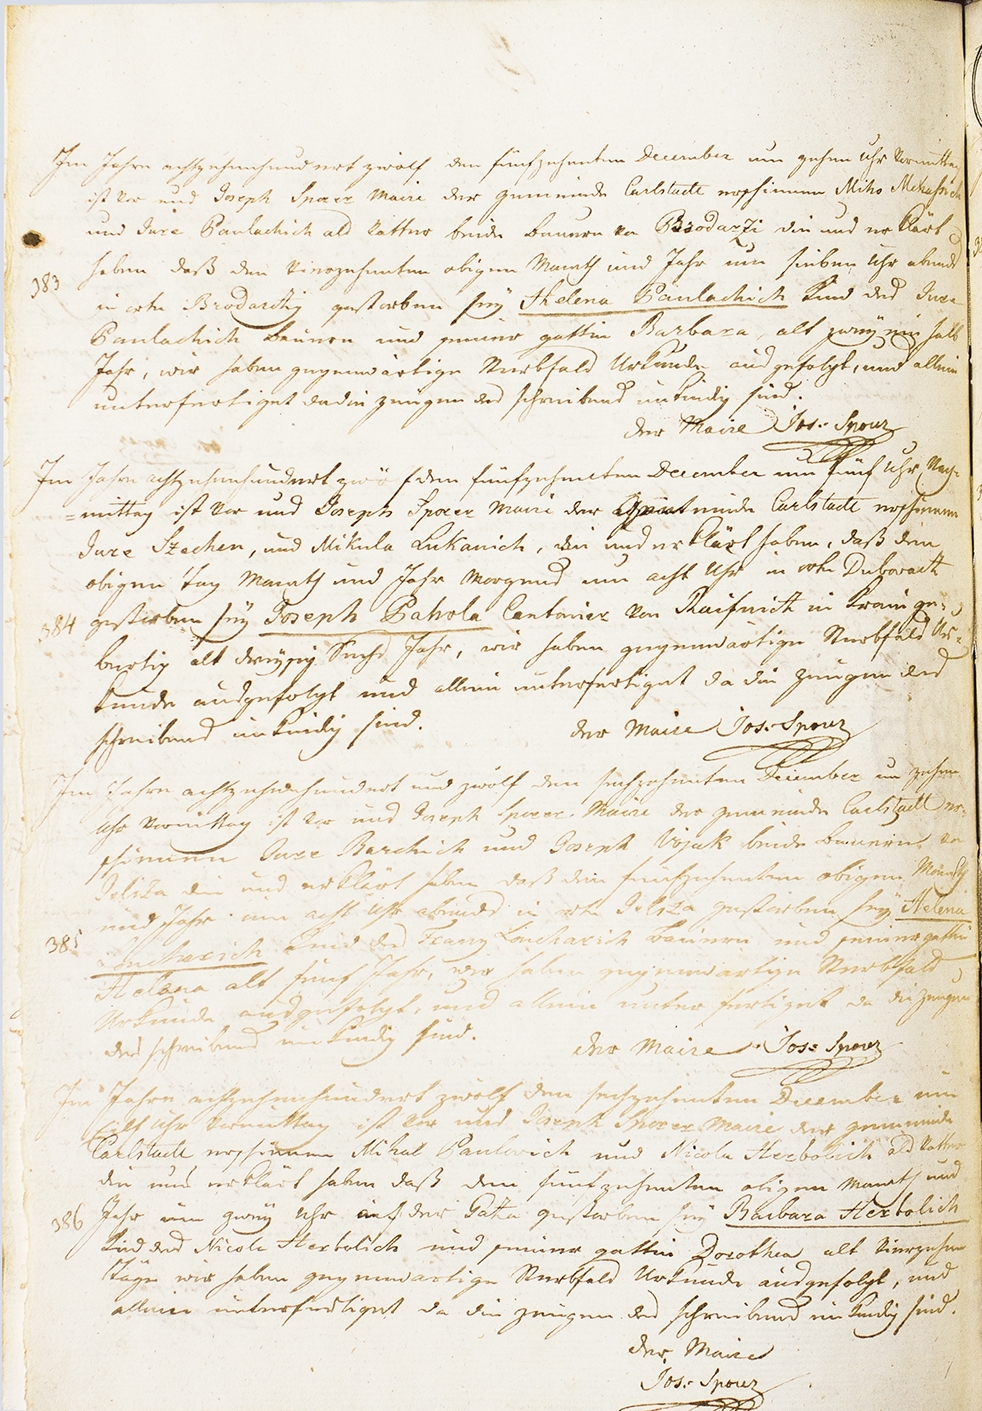 Im Jahre achtzehenhundert zwölf den fünfzehenten December um zehen Uhr Vormitta
ist vor uns Joseph Sporer Maire der gemeinde Carlstadt erschienen Miho
und Jure Paulachich als Vatter beide Bauern von Brodarzi die uns erklärt
haben daß den vierzehenten obigen Monath und Jahr um sieben Uhr abends
383
in orte Brodarskÿ gestorben seÿ Helena Paulachich Kind des Jure
Paulachich Bauern und seiner gattin Barbara, alt zweÿ ein halb
Jahr, wir haben gegenwärtige Sterbfals Urkunde ausgefolgt, und allein
unterfertiget da die zeugen des schreibens unkundig sind.
der Maire Jos: Sporer
Im Jahre achtzehenhundert zwölf den fünfzehenten December um fünf Uhr Nach=
=mittag ist vor uns Joseph Sporer Maire der gemeinde Carlstadt erschienen
Jure Stechen, und Mikula Lukanich, die uns erklärt haben, daß den
obigen Tag Monath und Jahr Morgens um acht Uhr in orte Dubovatz
384
gestorben seÿ Joseph Pahola Cantonier von Raifnitz in Krain ge=
burtig alt dreÿsig Sechs Jahr, wir haben gegenwärtige Sterbfals Ur=
kunde ausgefolgt und allein unterfertiget da die zeugen des
schreibens unkundig sind.
der Maire Jos: Sporer
Im Jahre achtzehenhundert und zwölf den sechzehenten December um zehen
Uhr Vormittag ist vor uns Joseph Sporer Maire der gemeinde Carlstadt er=
schienen Jure Barchich und Joseph Vojak beide Bauern von
Jelsza die uns erklärt haben daß den fünfzehenten obigen Monath
und Jahr um acht Uhr abends in orte Jelsza gestorben seÿ Helena
385
Loncharich Kind des Franz Loncharich Bauern und seiner gattin
Helena alt fünf Jahr, wir haben gegenwärtige Sterbfals
Urkunde ausgefolgt, und allein unterfertiget da die Zeugen
des schreibens unkundig sind.
der Maire Jos: Sporer
Im Jahre achtzehenhundert zwölf den sechzehenten December um
eilf Uhr Vormittag ist vor uns Joseph Sporer Maire der gemeinde
Carlstadt erschienen Mihal Paulovich und Nicola Herbolich als Vatter
die uns erklärt haben daß den fünfzehenten obigen Monath und
386
Jahr um zweÿ Uhr auf der Gaza gestorben seÿ Barbara Herbolich
Kind des Nicola Herbolich und seiner gattin Dorothea alt Vierzehen
Täge wir haben gegenwärtige Sterbfals Urkunde ausgefolgt, und
allein unterfertiget da die zeugen des schreibens unkundig sind.
der Maire
Jos: Sporer